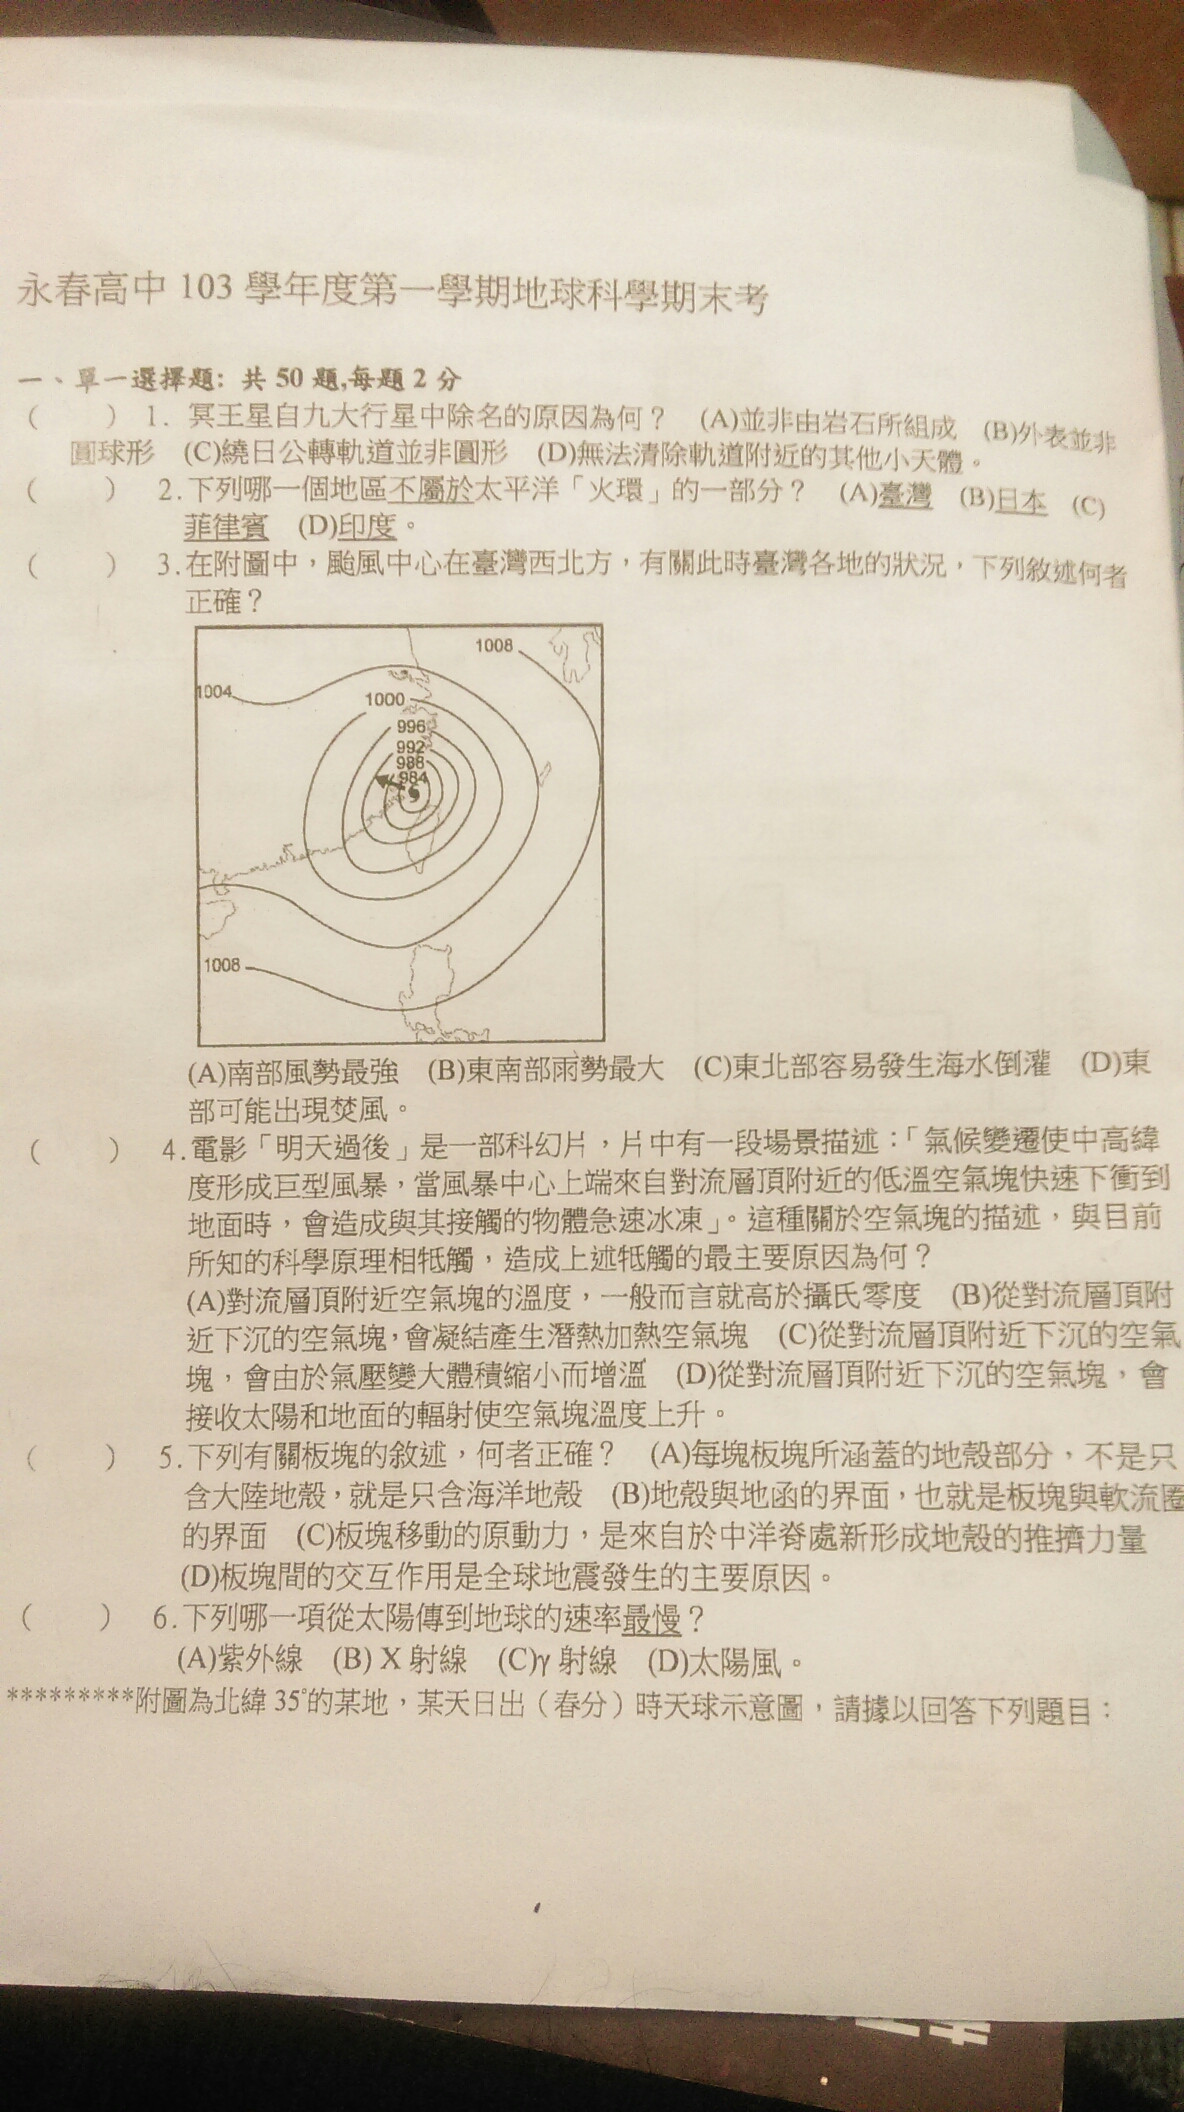 永春高中 103 學年度第一學期地球科學期末考
一、單一選擇題: 共 50 題,每題 2 分
(　　) 1. 冥王星自九大行星中除名的原因為何？ (A)並非由岩石所組成 (B)外表並非
圓球形 (C)繞日公轉軌道並非圓形 (D)無法清除軌道附近的其他小天體。
(　　) 2.下列哪一個地區不屬於太平洋「火環」的一部分？ (A)臺灣 (B)日本 (C)
菲律賓 (D)印度。
(　　) 3.在附圖中，颱風中心在臺灣西北方，有關此時臺灣各地的狀況，下列敘述何者
正確？
1008
1004
1000
996
992
988
984
1008
(A)南部風勢最強 (B)東南部雨勢最大 (C)東北部容易發生海水倒灌 (D)東
部可能出現焚風。
(　　) 4.電影「明天過後」是一部科幻片，片中有一段場景描述：「氣候變遷使中高緯
度形成巨型風暴，當風暴中心上端來自對流層頂附近的低溫空氣塊快速下衝到
地面時，會造成與其接觸的物體急速冰凍」。這種關於空氣塊的描述，與目前
所知的科學原理相牴觸，造成上述牴觸的最主要原因為何？
(A)對流層頂附近空氣塊的溫度，一般而言就高於攝氏零度 (B)從對流層頂附
近下沉的空氣塊，會凝結產生潛熱加熱空氣塊 (C)從對流層頂附近下沉的空氣
塊，會由於氣壓變大體積縮小而增溫 (D)從對流層頂附近下沉的空氣塊，會
接收太陽和地面的輻射使空氣塊溫度上升。
(　　) 5.下列有關板塊的敘述，何者正確？ (A)每塊板塊所涵蓋的地殼部分，不是只
含大陸地殼，就是只含海洋地殼 (B)地殼與地函的界面，也就是板塊與軟流圈
的界面 (C)板塊移動的原動力，是來自於中洋脊處新形成地殼的推擠力量
(D)板塊間的交互作用是全球地震發生的主要原因。
(　　) 6.下列哪一項從太陽傳到地球的速率最慢？
(A)紫外線 (B) X 射線 (C)γ 射線 (D)太陽風。
*********附圖為北緯 35°的某地，某天日出（春分）時天球示意圖，請據以回答下列題目：